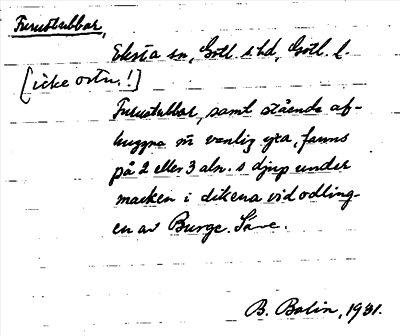 Furustubbar,
Eksta sn, Gotl. s. hd, Gotl. l.
[icke ortn.!]
Furustubbar, samt stående af-
huggna m vanlig yxa, fanns
på 2 eller 3 aln. s djup under
marken i dikena vid odling-
en av Burge. Säve.
B. Bolin, 1931.